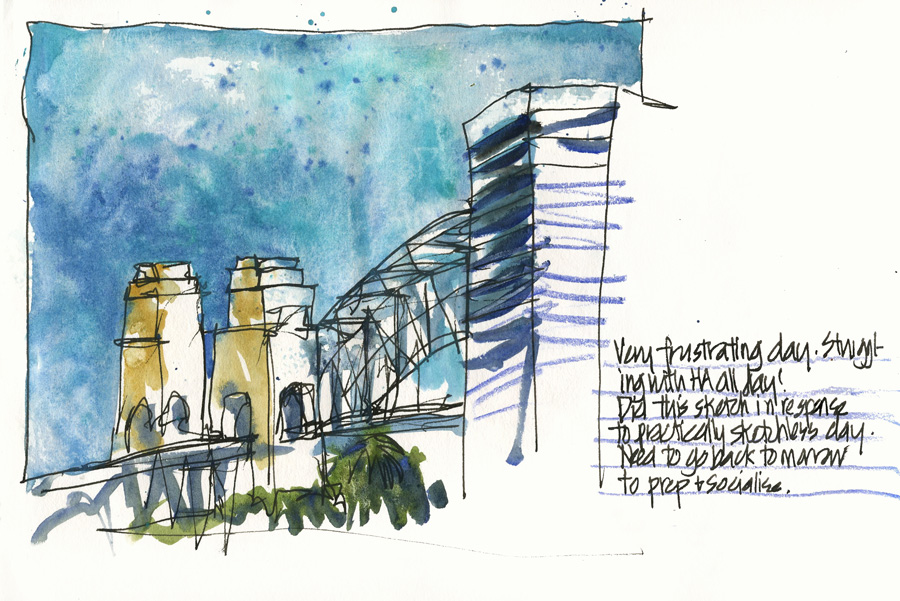 Very frustrating day. Struggl-
ing with HA all day!
Did this sketch in response
to practically sketchless day.
Need to go back tomorrow
to prep + socialise.